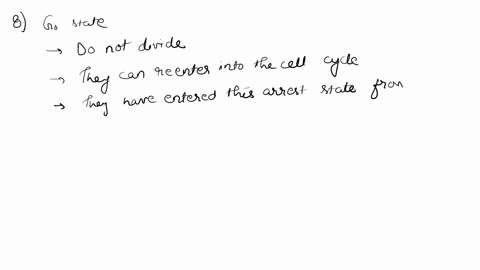 8) G0 state
→ Do not divide
→ They can reenter into the cell cycle
→ They have entered this arrest state from